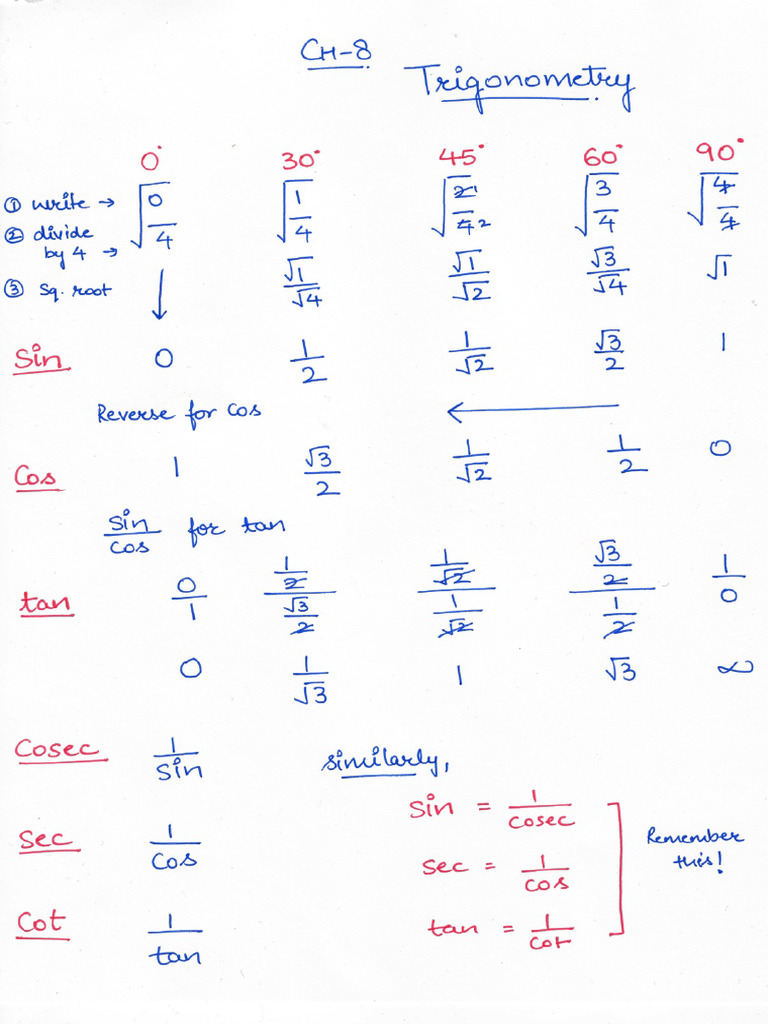 CH-8
Trigonometry
0° 30° 45° 60° 90°
① write → √(0/4) √(1/4) √(2̶¹/4̶²) √(3/4) √(4̶/4̶)
② divide by 4 →
③ Sq. root ↓ √1/√4 √1/√2 √3/√4 √1
Sin 0 1/2 1/√2 √3/2 1
Reverse for cos ←
Cos 1 √3/2 1/√2 1/2 0
Sin/Cos for tan
tan 0/1 (1/2̶)/(√3/2̶) (1/√2̶)/(1/√2̶) (√3/2̶)/(1/2̶) 1/0
0 1/√3 1 √3 ∞
Cosec 1/Sin
Sec 1/Cos
Cot 1/tan
Similarly,
Sin = 1/Cosec
Sec = 1/Cos
tan = 1/Cot
Remember
this!